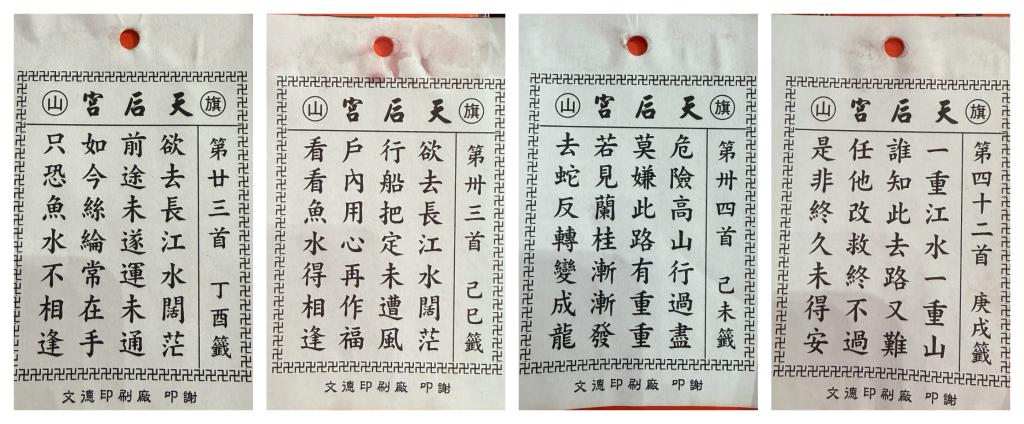 旗天后宮山
第廿三首 丁酉籤
欲去長江水闊茫
前途未遂運未通
如今絲綸常在手
只恐魚水不相逢
文德印刷廠 叩謝
旗天后宮山
第卅三首 己巳籤
欲去長江水闊茫
行船把定未遭風
戶內用心再作福
看看魚水得相逢
文德印刷廠 叩謝
旗天后宮山
第卅四首 己未籤
危險高山行過盡
莫嫌此路有重重
若見蘭桂漸漸發
去蛇反轉變成龍
文德印刷廠 叩謝
旗天后宮山
第四十二首 庚戌籤
一重江水一重山
誰知此去路又難
任他改救終不過
是非終久未得安
文德印刷廠 叩謝